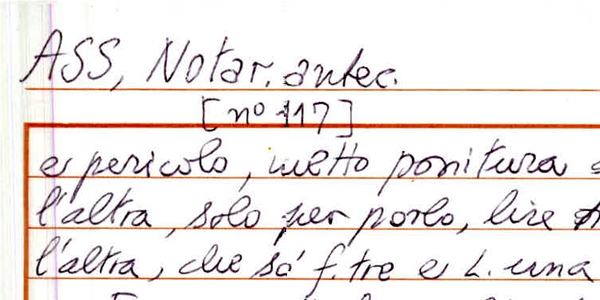 ASS, Notar. antec.
[nº 117]
e pericolo, metto ponitura
l'altra, solo per porlo, lire
l'altra, che sò f. tre e L. una